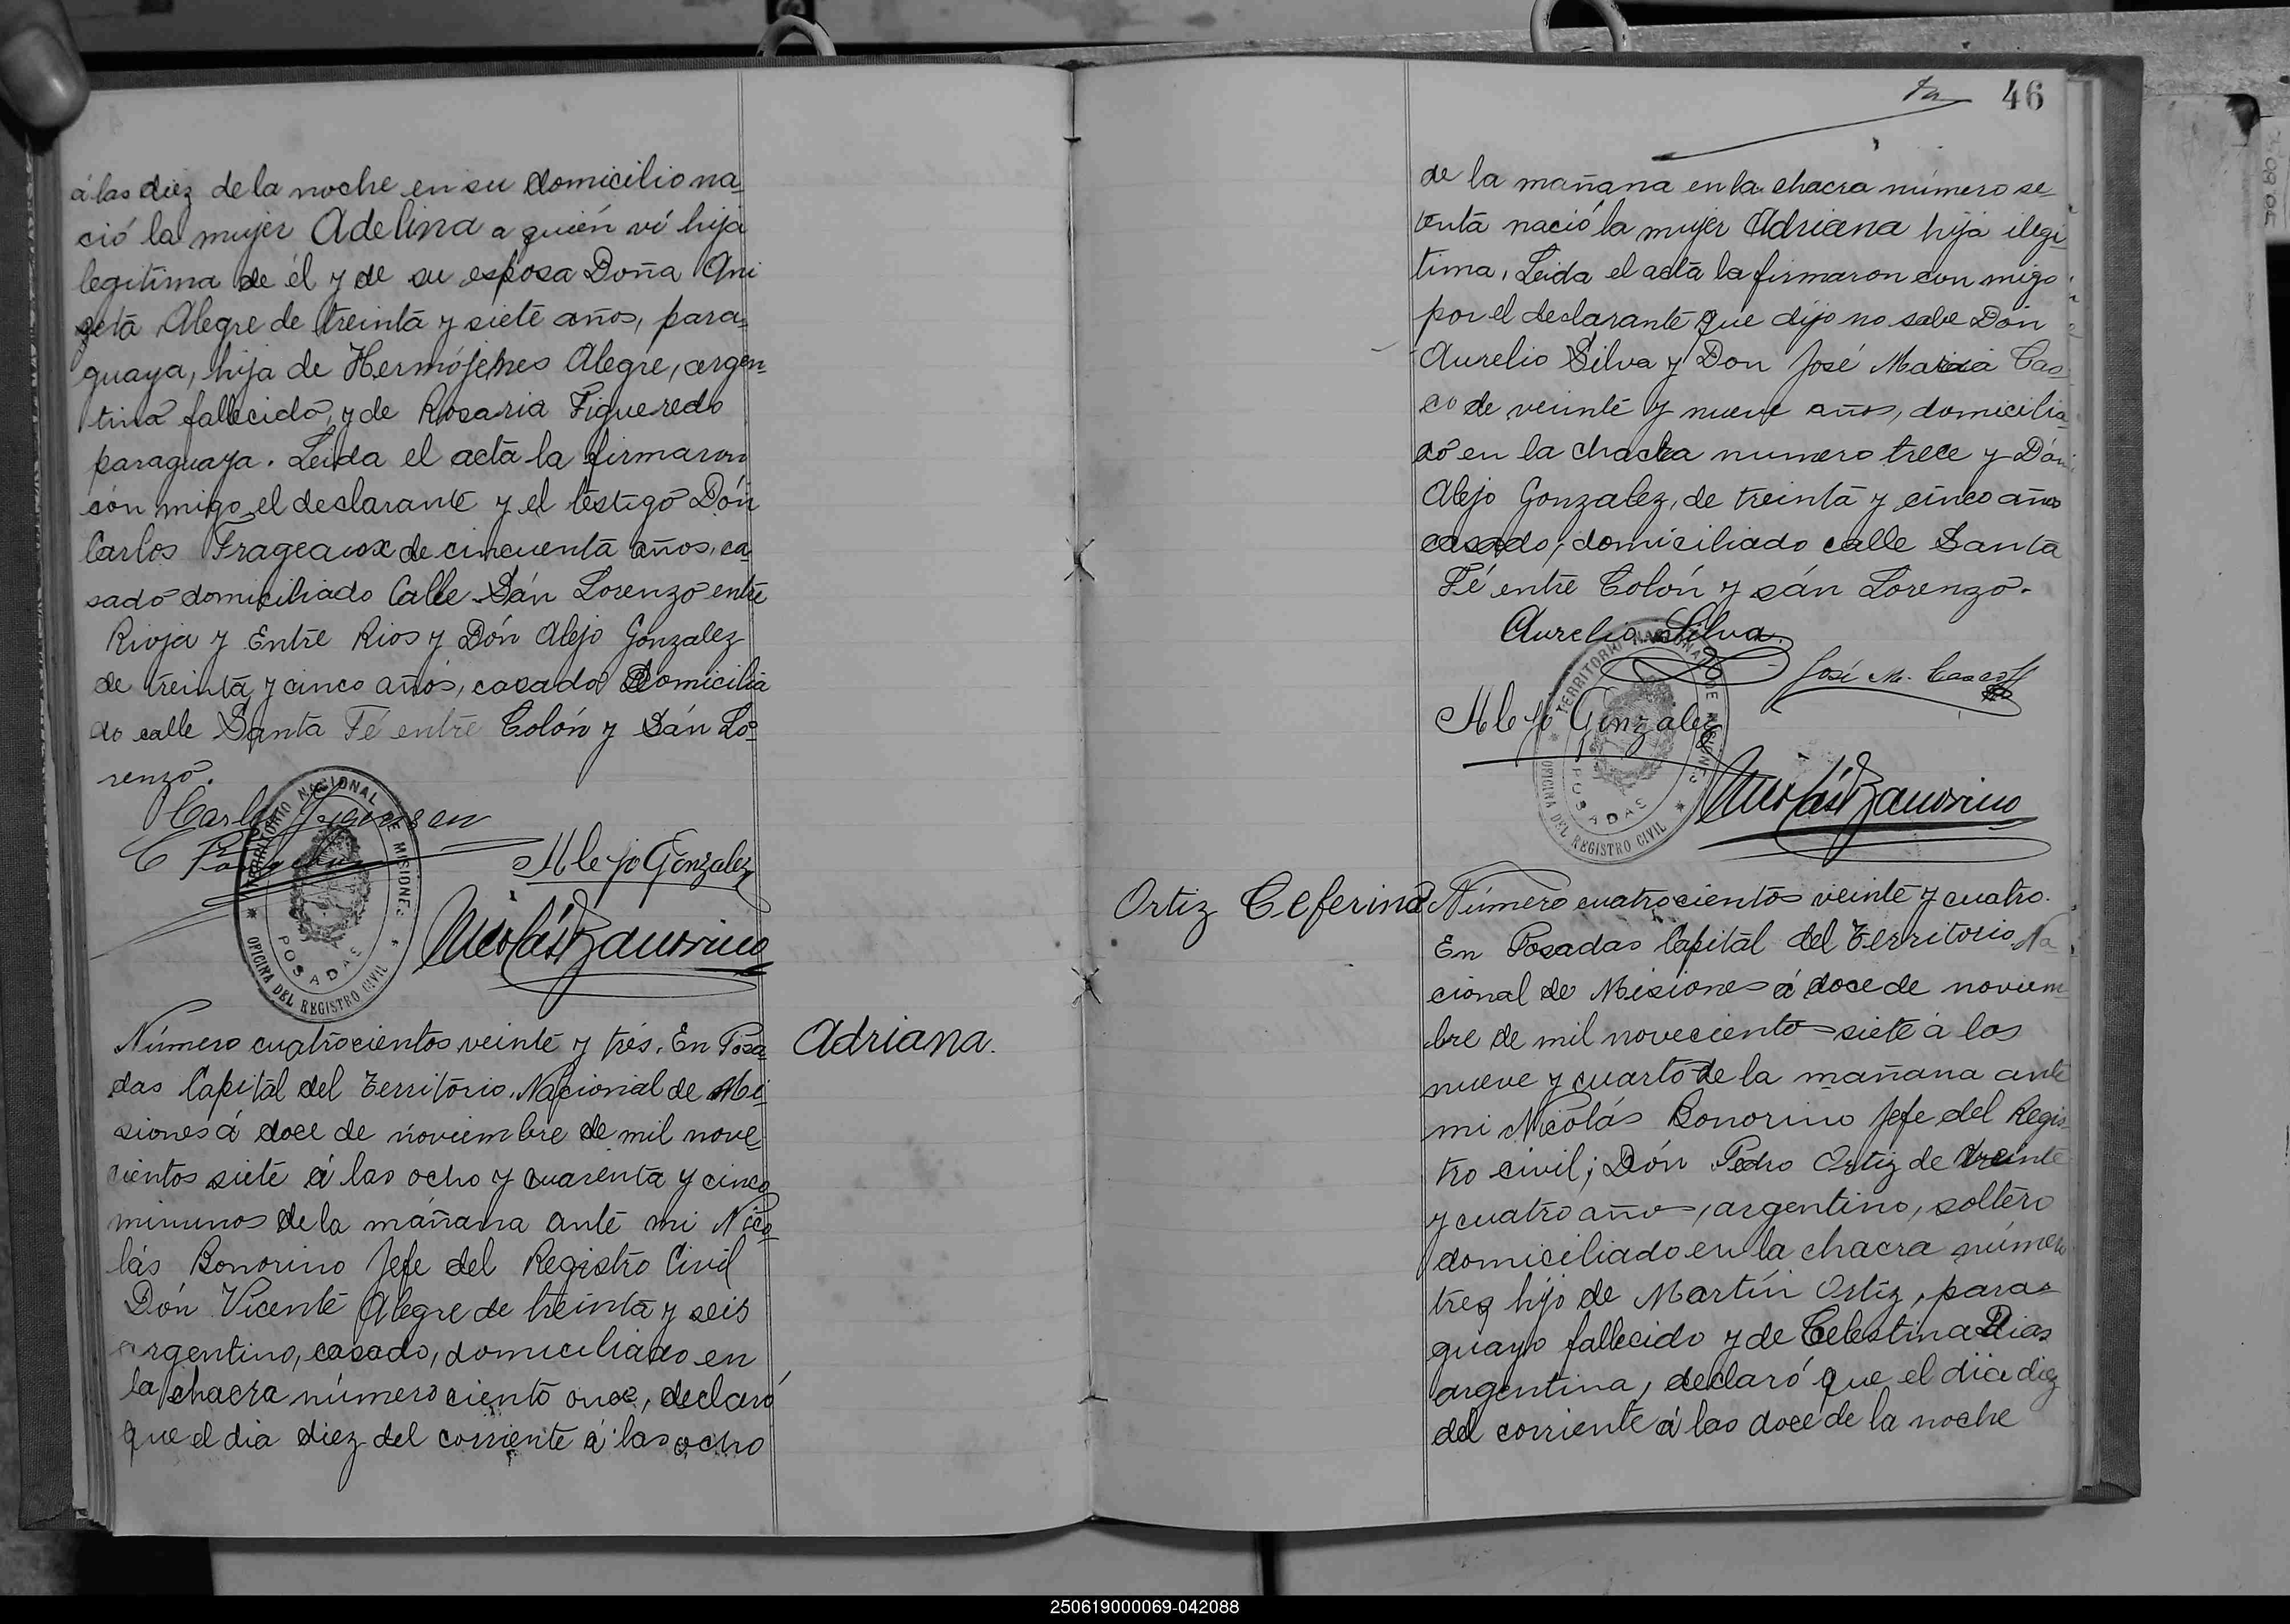 á las diez de la noche en su domicilio na_
ció la mujer Adelina a quién ví hija
legitima de él y de su esposa Doña Ani
zetá Alegre de treintá y sieté años, para_
guaya, hija de Hermójenes Alegre, argen_
tina fallecido, y de Rosaria Figueredo
paraguaya. Leida el acta la firmaron
con migo el declarante y el téstigo Don
Carlos Frageaux de cincuentá años, ca_
sado domiciliado Calle Sán Lorenzo entre
Rioja y Entre Rios y Dón Alejo Gonzalez
de treintá y cinco años, casado Domicilia
do calle Santa Fé entre Colón y Sán Lo_
renzo.
Carlos
Alejo Gonzalez
Nicolás Bonorino
TERRITORIO NACIONAL DE MISIONES
POSADAS
OFICINA DEL REGISTRO CIVIL
Número cuatrocientos veinte y trés. En Posa_
das Capitál del Territorio Nacional de Mi_
siones á doce de noviembre de mil nove_
cientos sieté á las ocho y cuarenta y cinco
minunos de la mañana anté mi Nico_
lás Bonorino Jefe del Registro Civil
Dón Vicenté Alegre de treintá y seis
argentino, casado, domiciliado en
la chacra número ciento once, declaró
que el dia diez del corriente á las ocho
Adriana.
46
de la mañana en la chacra número se_
tentá nació la mujer Adriana hija ilegi_
tima. Leida el actá la firmaron con migo
por el declaranté que dijo no sabe Don
Aurelio Silva y Don José Maria Cas_
co de veinté y nueve años, domicilia_
do en la chacra numero trece y Dón
Alejo Gonzalez, de treintá y cinco años
casado, domiciliado calle Santa
Fé entre Colón y sán Lorenzo.
Aurelio Silva
José M. Casco
Alejo Gonzalez
Nicolás Bonorino
TERRITORIO NACIONAL DE MISIONES
POSADAS
OFICINA DEL REGISTRO CIVIL
Ortiz Ceferino
Número cuatrocientos veinte y cuatro.
En Posadas Capitál del Territorio Na_
cional de Misiones á doce de noviem_
bre de mil novecientos sieté á las
nueve y cuarto de la mañana anté
mi Nicolás Bonorino Jefe del Regis_
tro civil; Dón Pedro Ortiz de treinté
y cuatro años, argentino, soltéro
domiciliado en la chacra número
tres hijo de Martín Ortiz, para_
guayo fallecido y de Celestina Dias
argentina, declaró que el dia diez
del corriente á las doce de la noche
250619000069-042088